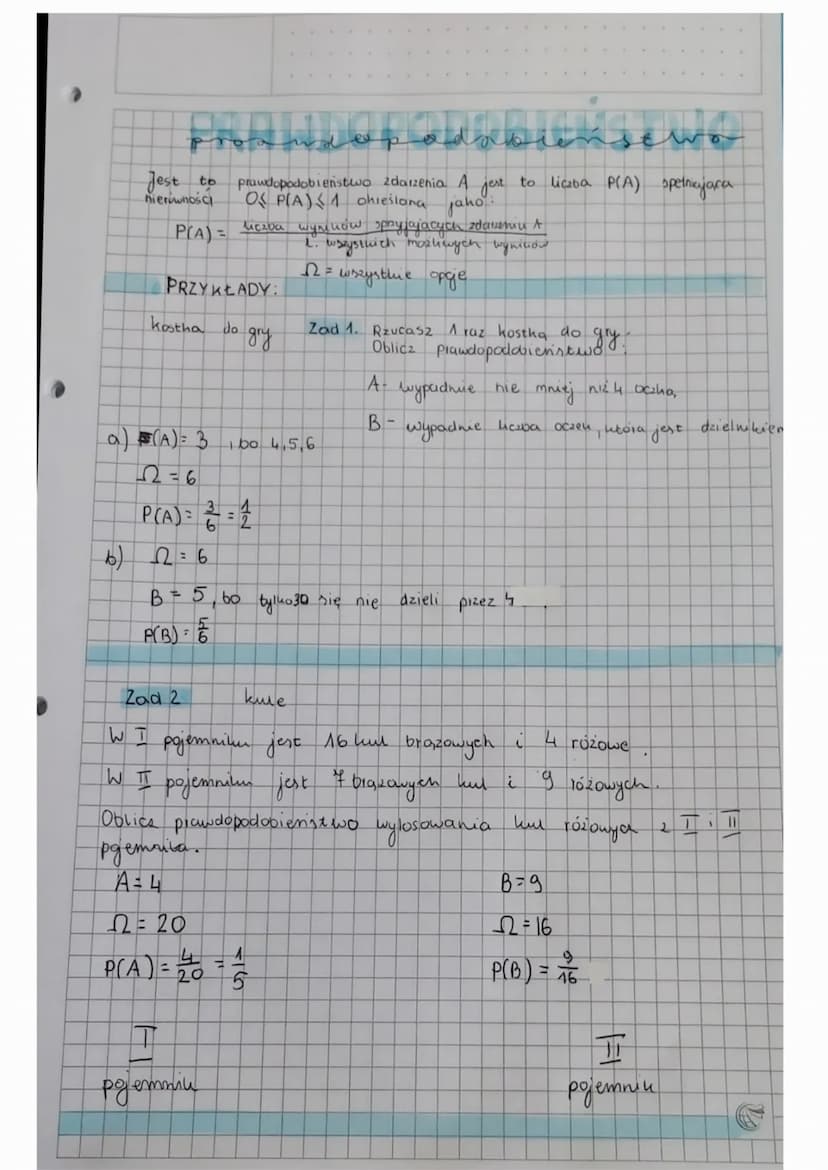 PRAWDOPODOBIEŃSTWO
prawdopodobieństwo
Jest to prawdopodobieństwo zdarzenia A jest to liczba P(A) spełniająca
nierówności 0≤ P(A) ≤ 1 określona jako:
P(A) = liczba wyników sprzyjających zdarzeniu A
l. wszystkich możliwych wyników
Ω = wszystkie opcje
PRZYKŁADY:
kostka do gry Zad 1. Rzucasz 1 raz kostką do gry.
Oblicz prawdopodobieństwo:
A- wypadnie nie mniej niż 4 oczka,
B - wypadnie liczba oczek, która jest dzielnikiem
a) (A)= 3 , bo 4,5,6
Ω = 6
P(A) = 3/6 = 1/2
b) Ω = 6
B = 5, bo tylko 30 się nie dzieli przez 4
P(B) = 5/6
Zad 2 kule
W I pojemniku jest 16 kul brązowych i 4 różowe.
W II pojemniku jest 7 brązowych kul i 9 różowych.
Oblicz prawdopodobieństwo wylosowania kul różowych z I i II
pojemnika.
A = 4 B = 9
Ω = 20 Ω = 16
P(A) = 4/20 = 1/5 P(B) = 9/16
I II
pojemnik pojemnik